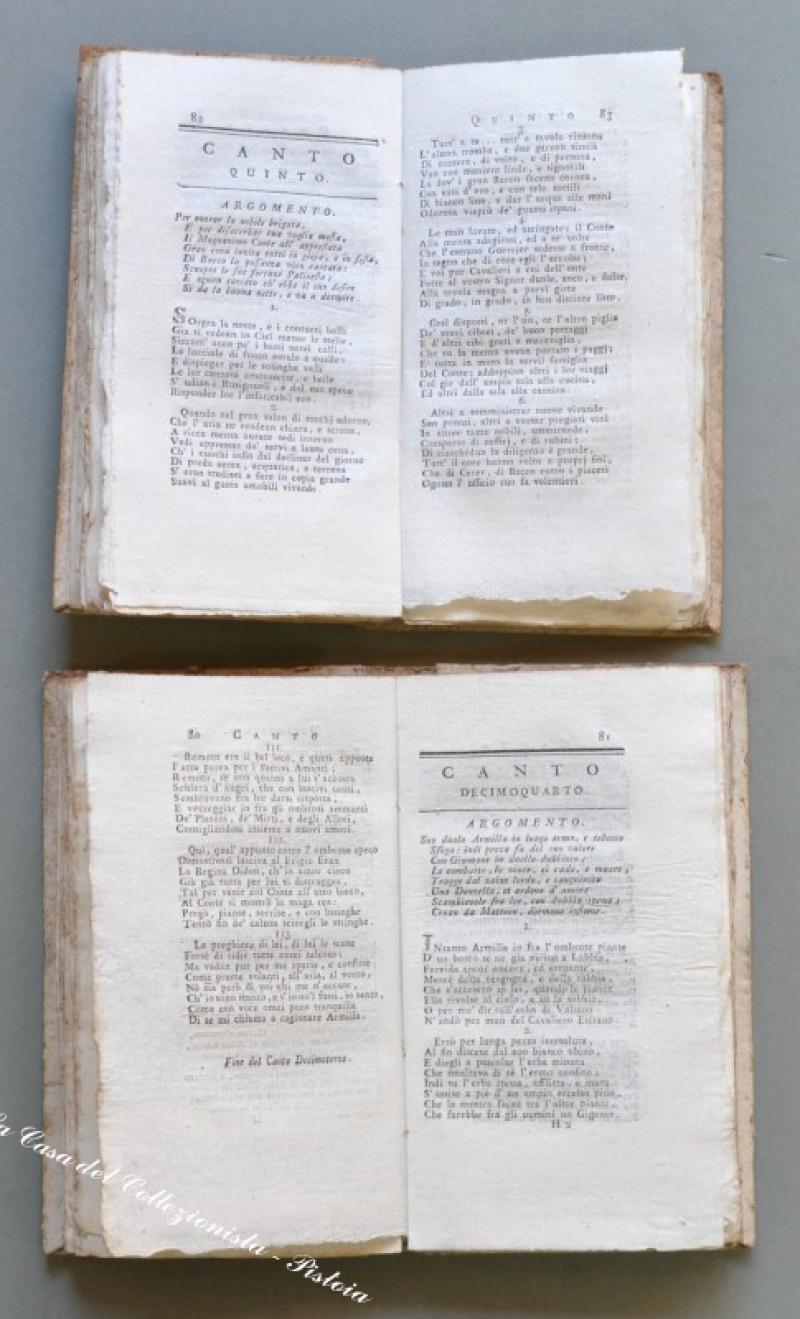 82
CANTO
QUINTO.
ARGOMENTO.
Per onorar la nobile brigata,
E per disacerbar sua voglia mesta,
Il Magnanimo Conte all' apprestata
Gran cena invita tutti in gioja, e in festa,
Di Bacco la possanza vien cantata:
Scuopre le sue fortune
E ognun sazio ch' ebbe il suo desire
Si da la buona notte, e va a dormire.
1.
SOrgea la notte, e i conterti balli
Gia si vedean in Ciel menar le stelle,
Siccom' anco po' i bassi nerei calli,
Le lucciole di fuoco emule a quelle;
E dispiegar per le solinghe valli
Le lor canzoni amorosette, e belle
S' udian i Rusignuoli, e dal suo speco
Risponder lor l' infaticabil eco.
2.
Quando nel gran salon di torchj adorno,
Che l' aria ne rendean chiara, e serena,
A ricca mensa aurate sedi intorno
Vedi apprestar da' servi a lauta cena,
Ch' i cuochi infin dal declinar del giorno
Di preda aerea, acquatica, e terrena
S' eran studiati a fare in copia grande
Suavi al gusto amabili vivande.
QUINTO 83
3.
Tutt' a
L' altera tromba, e due garzon simili
Di statura, di volto, e di persona,
Van con maniere linde, e signorili
La dov' i gran Baron facean corona,
Con vasi d' oro, e con tele sottili
Di bianco lino, a dar l' acqua alle mani
Odorosa vieppiù de' guanti ispani.
4.
Le man lavate, ed asciugate; il Conte
Alla mensa adagiossi, ed a se volte
Che l' estrano Guerrier sedesse a fronte,
In segno che di core egli l' accolse;
E voi pur Cavalieri a cui dell' onte
Fatte al vostro Signor duole, anco, e dolse,
Alla tavola magna a porvi giste
Di grado, in grado, in ben distinte liste.
5.
Così disposti, or l' un, or l' altro piglia
De' soavi ciberi, de' buon potaggi
E d' altri cibi grati a maraviglia,
Che va la mensa avean portato i paggj;
E' tutta in moto la servil famiglia
Del Conte; addoppian altri i lor viaggj
Col gir dall' ampia sala alla cucina,
Ed altri dalla sala alla cantina.
6.
Altri a somministrar nuove vivande
Son pronti, altri a votar pregiati vini
In auree tazze nobili, ammirande,
Cosparse di zaffiri, e di rubini;
Di ciascheduna la diligenza è grande,
Tutt' il core hanno volto a proprj fini,
Che di Cerer, di Bacco entro i piaceri
Ognun l' uficio suo fa volentieri.
80 CANTO
111.
Remoto era il bel loco, e quasi apposta
Fatta parea per i furtivi Amanti;
Remoto, se non quanto a lui s' accosta
Schiera d' augei, che con lascivi canti,
Sembravano fra lor darsi risposta,
E vezzeggiar in fra gli ombrosi ammanti
De' Platani, de' Mirti, e degli Allori,
Consigliandosi insieme a nuovi amori.
112.
Qui, qual' appunto entro l' ombroso speco
Dimostrossi lasciva al Frigio Enea
La Regina Didon, ch' in amor cieco
Già già tutta per lui si distruggea,
Tal per venir col Conte all' atto bieco,
Al Conte si mostrò la maga rea:
Pregò, pianse, sorrise, e con lusinghe
Tentò fin de' calzon sciorgli le stringhe.
113.
Le preghiere di lei, di lei le scuse
Forse di ridir tutte avrei talento;
Ma vadan pur per me sparse, e confuse
Come piume volanti, all' aria, al vento,
Nò sia però di voi chi me n' accuse,
Ch' io sono stanco, e s' io non fossi, io sento,
Come con voce omai poco tranquilla
Di se mi chiama a ragionare Armilla.
Fine del Canto Decimoterzo.
81
CANTO
DECIMOQUARTO.
ARGOMENTO.
Suo duolo Armilla in luogo ermo, e
Sfoga: indi prova fa del suo valore
Con Giumone in duello dubbioso;
Lo combatte, lo vince, ei cade, e muore;
Tragge dal zaino lordo, e sanguinoso
Una Donzella, et ardono d' amore
Scambievole fra lor, con dubbia speme;
Cenan da Matteon, dormono insieme.
1.
INtanto Armilla in fra l' ombrate piante
D' un bosco se ne gìa vicino a Labbia,
Fervida ancor
Mercè della vergogna, e della rabbia,
Che s' accesero in lei, quando le piante
Ella rivolse al cielo, e in su la sabbia,
O per me' dir sull' erba di Valsano
N' andò per man del Cavaliero Estrano.
2.
Errò per lunga pezza irresoluta,
Al fin discese dal suo bianco ubino,
E diegli a pascolar l' erba minuta
Che smaltava di sè l' ermo confino,
Indi su l' erba stessa, afflitta, e muta
S' assise a piè d' un ampio eccelso pino,
Che la mostra facea tra l' altre piante,
Che farebbe fra gli uomini un Gigante.
H 2
la Casa del Collezionista - Pistoia